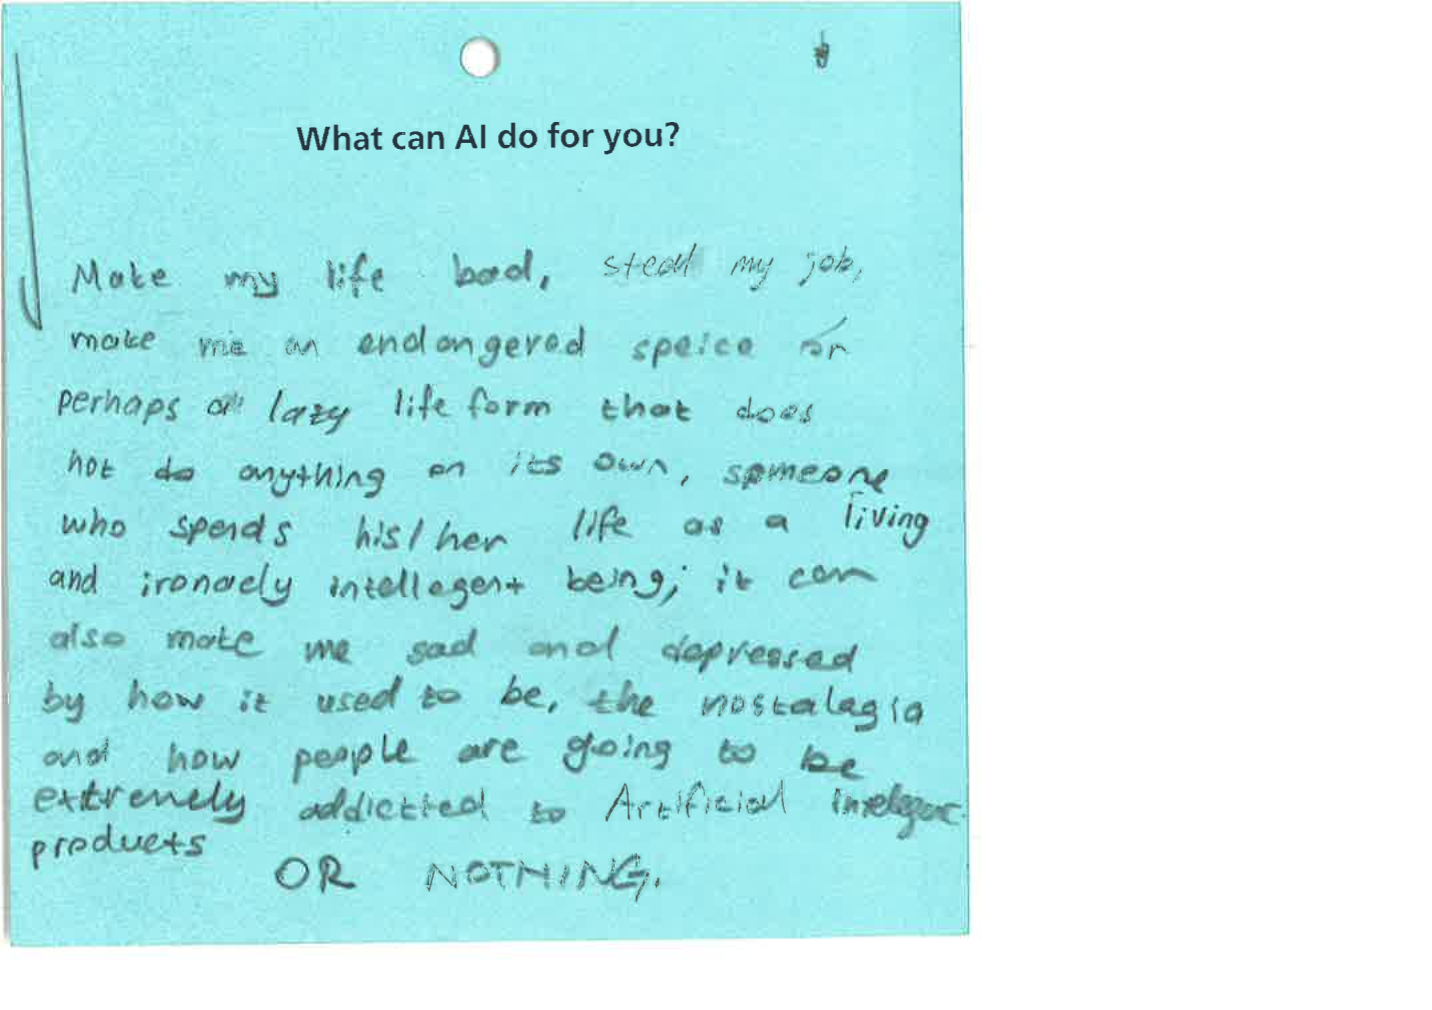 What can AI do for you?
Make my life bad, steal my job,
make me an endangered speice or
perhaps a lazy life form that does
not do anything on its own, someone
who spends his/her life as a living
and ironacly intellegent being; it can
also make me sad and depressed
by how it used to be, the nostalagia
and how people are going to be
extremely addictted to Artificial
products
OR NOTHING.